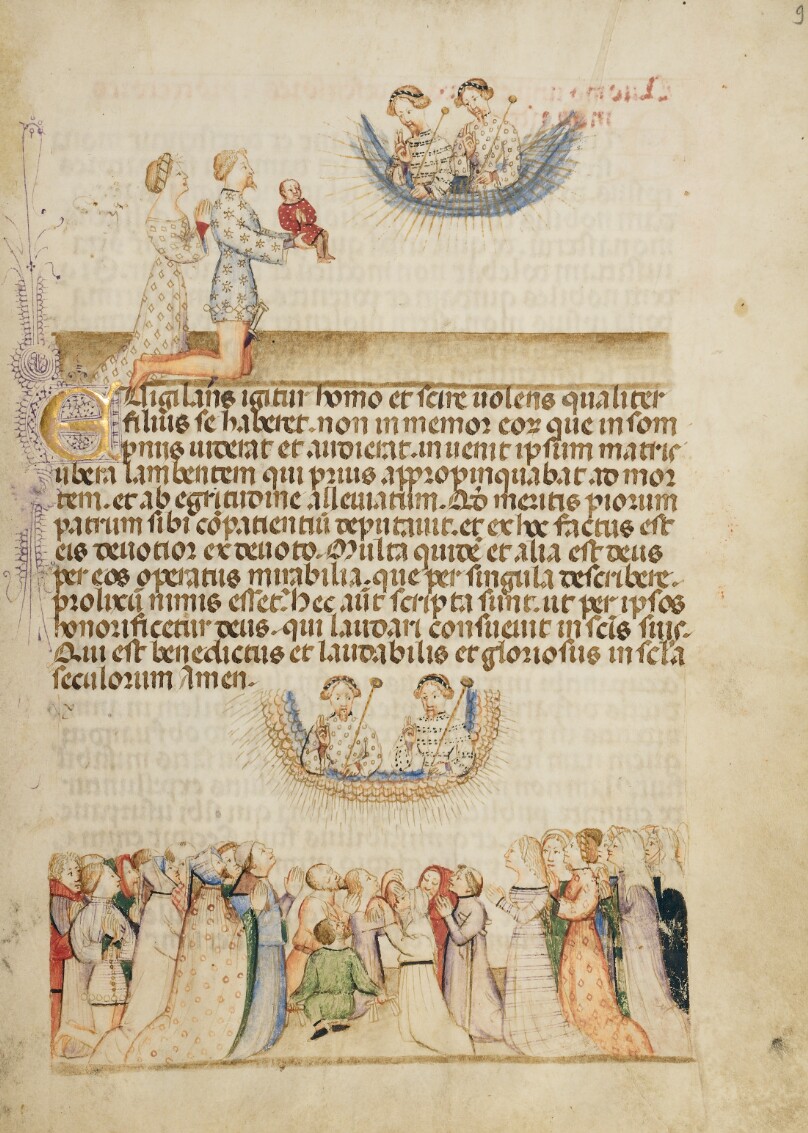 9
Euigilans igitur homo et scire uolens qualiter
filius se haberet. non inmemor eoꝝ que in som
pniis uiderat et audierat. inuenit ipsum matris
ubera lambentem qui prius appropinquabat ad mor
tem. et ab egritudine alleuiatum. Ad meritis piorum
patrum sibi cōpatientiū deputauit. et ex hoc factus est
eis deuotior ex deuoto. Multa quidē et alia est deus
per eos operatus mirabilia. que per singula describere.
prolixū nimis esset. hec aūt scripta sunt. ut per ipsos
honorificetur deus. qui laudari consueuit in scīs suis.
Qui est benedictus et laudabilis et gloriosus in scła
seculorum Amen.